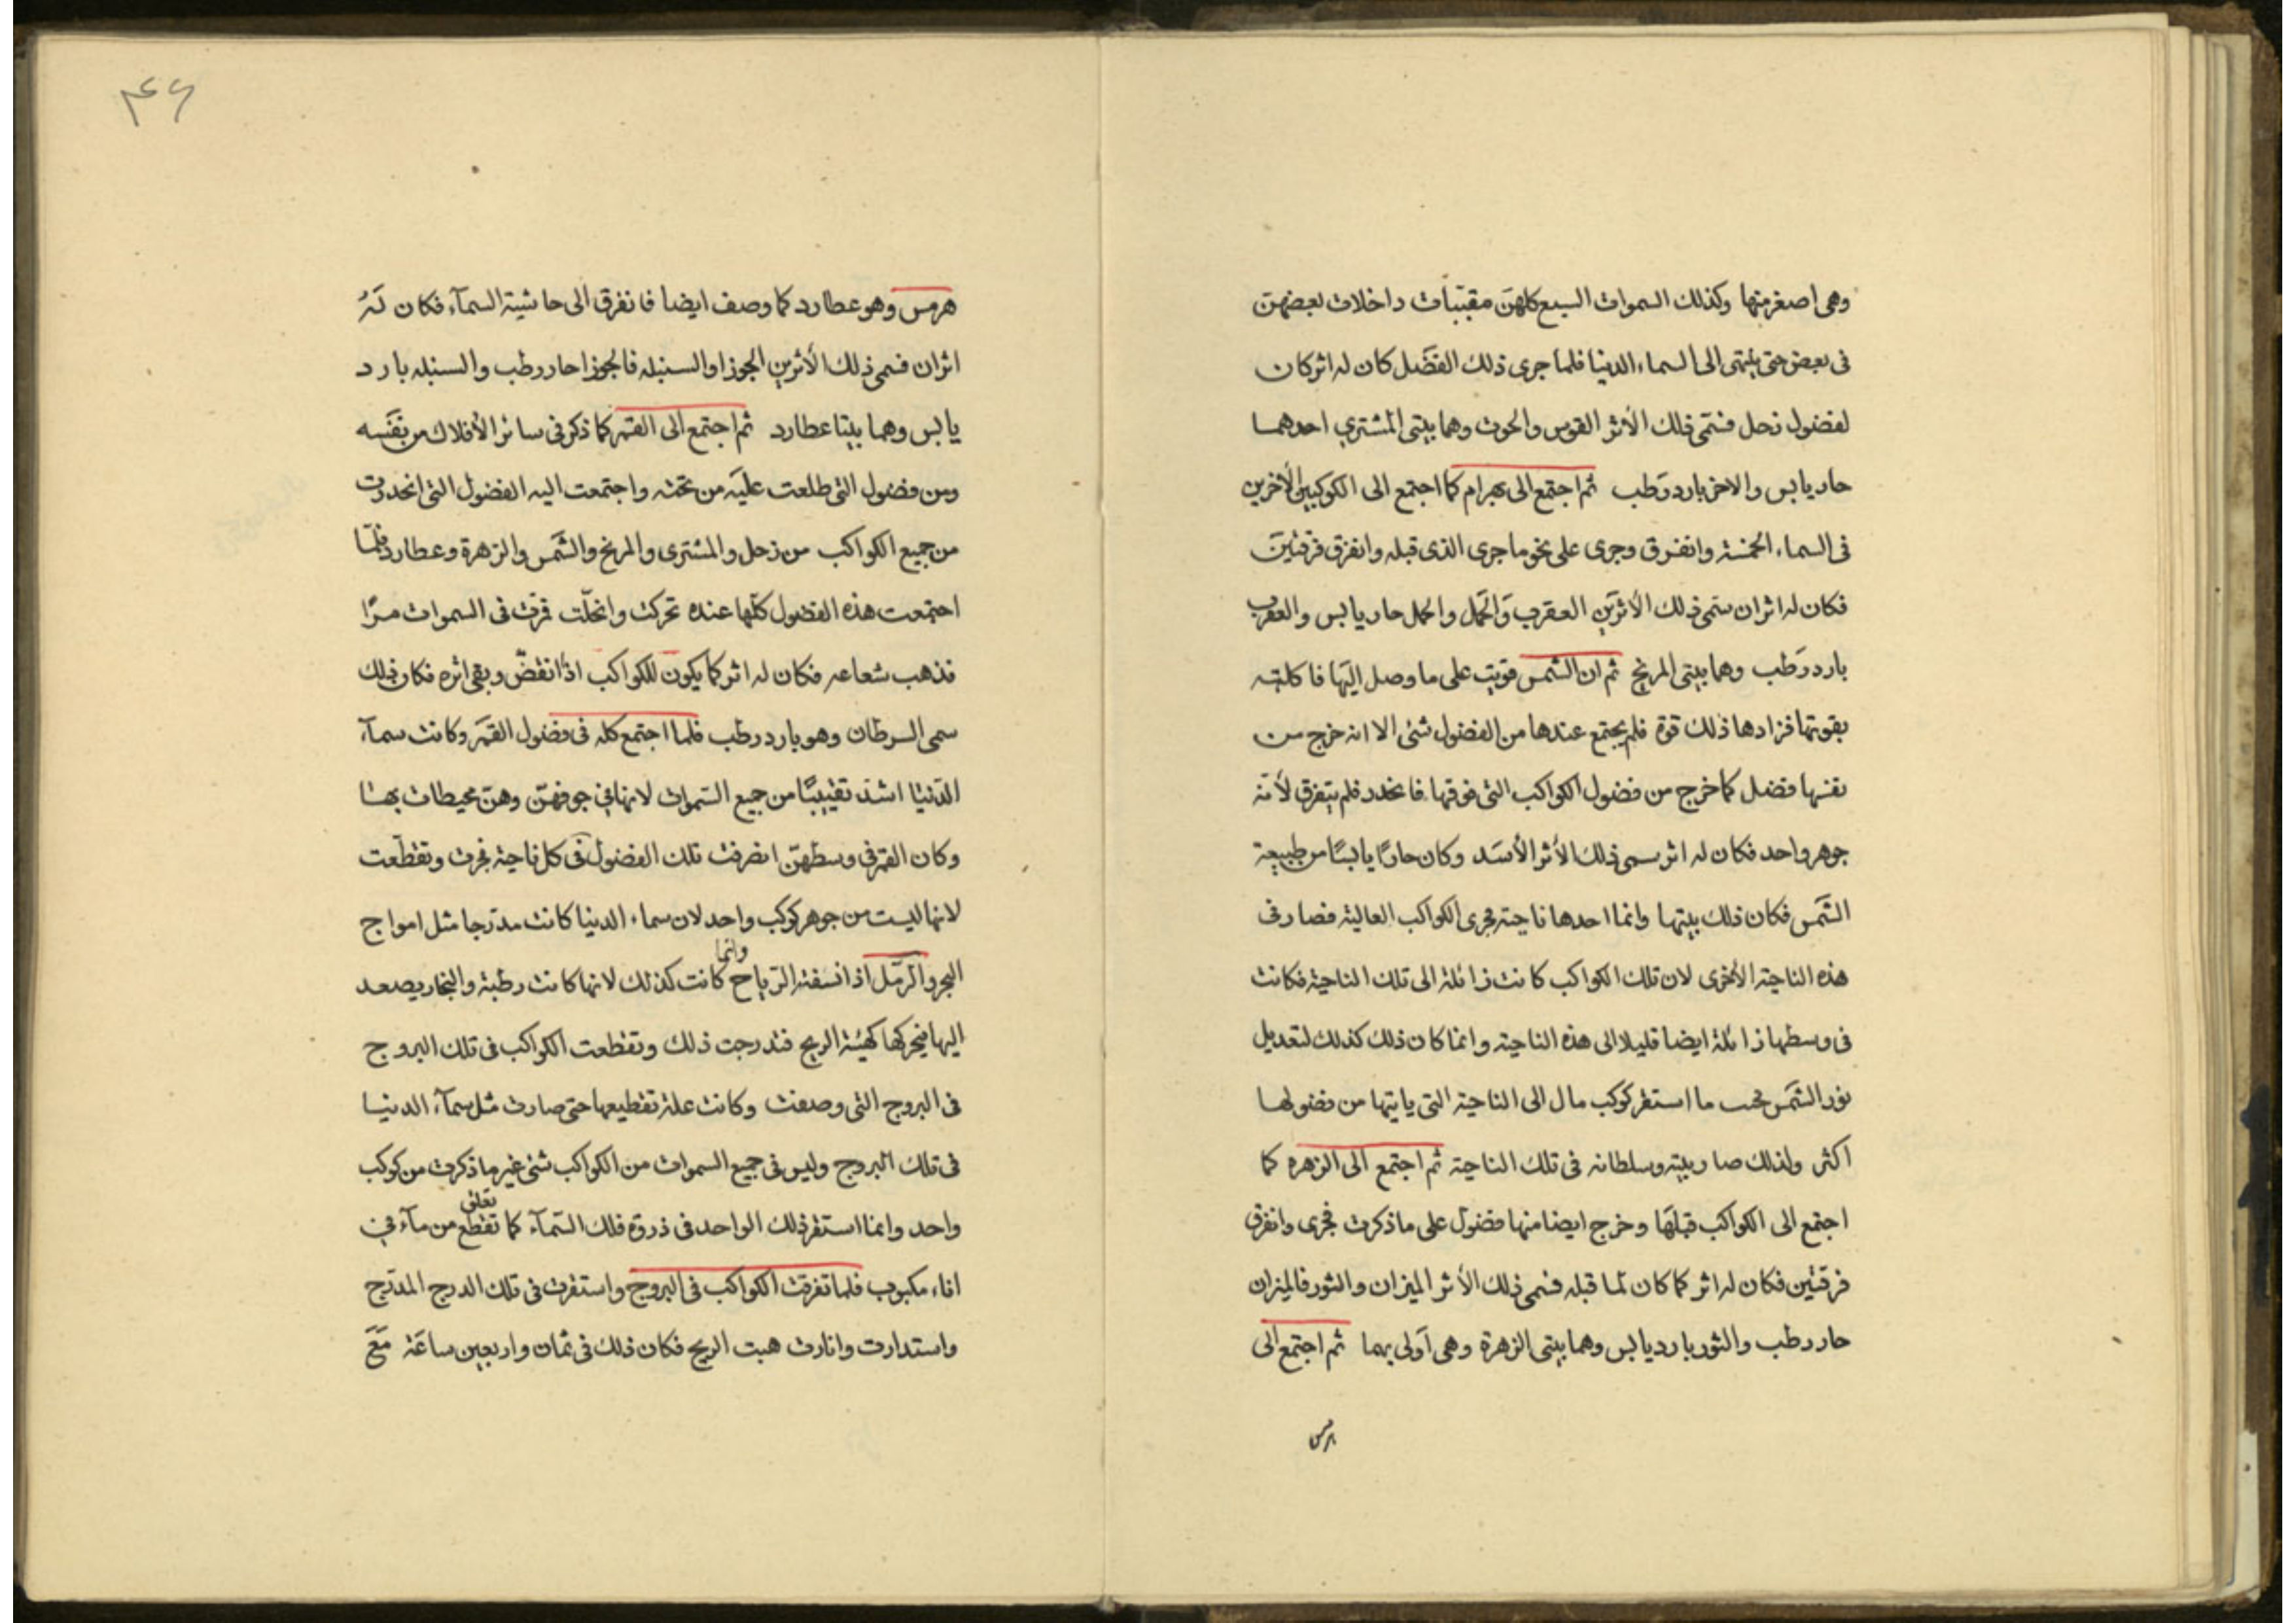 وهى اصغر منها وكذلك السموات السبع كلهن مقببات داخلات بعضهن
فى بعض حتى ينتهى الى السماء الدنيا فلما جرى ذلك الفضل كان له اثر كان
لفضول زحل فسمى ذلك الأثر القوس والحوت وهما بيتى المشتري احدهما
حار يابس والاخر بارد رطب ثم اجتمع الى بهرام كما اجتمع الى الكوكبين الأخرين
فى السماء الخمسة وانفرق وجرى على نحو ما جرى الذى قبله وانفرق فرقتين
فكان له اثران سمى ذلك الأثرين العقرب والحمل والحمل حار يابس والعقرب
بارد رطب وهما بيتى المريخ ثم ان الشمس قويت على ما وصل اليها فاكلته
بقوتها فزادها ذلك قوة فلم يجتمع عندها من الفضول شئ الا انه خرج من
نفسها فضل كما خرج من فضول الكواكب التى فوقها فانحدر فلم يتفرق لأنه
جوهر واحد فكان له اثر سمى ذلك الأثر الأسد وكان حارًا يابسًا من طبيعة
الشمس فكان ذلك بيتها وانما احدها ناحية مجرى الكواكب العالية فصار فى
هذه الناحية الأخرى لان تلك الكواكب كانت زائلة الى تلك الناحية فكانت
فى وسطها زائلة ايضا قليلا الى هذه الناحية وانما كان ذلك كذلك لتعديل
نور الشمس فحسب ما استقر كوكب مال الى الناحية التى ياتيها من فضولها
اكثر ولذلك صار بيته وسلطانه فى تلك الناحية ثم اجتمع الى الزهره كما
اجتمع الى الكواكب قبلها وخرج ايضا منها فضول على ما ذكرت فجرى وانفرق
فرقتين فكان له اثر كما كان لما قبله فسمى ذلك الأثر الميزان والثور فالميزان
حار رطب والثور بارد يابس وهما بيتى الزهرة وهى اولى بهما ثم اجتمع الى
هرمس
۴۶
هرمس وهو عطارد كما وصف ايضا فانفرق الى حاشية السمآء فكان له
اثران فسمى ذلك الأثرين الجوزا والسنبله فالجوزا حار رطب والسنبله بارد
يابس وهما بيتا عطارد ثم اجتمع الى القمر كما ذكر فى سائر الأفلاك من نفسه
ومن فضول التى طلعت عليه من تحته واجتمعت اليه الفضول التى انحدرت
من جميع الكواكب من زحل والمشترى والمريخ والشمس والزهرة وعطارد فلما
اجتمعت هذه الفضول كلها عنده تحركت وانحلت فمرت فى السموات مرًا
فذهب شعاعه فكان له اثر كما يكون للكواكب اذا انقض وبقى اثره فكان ذلك
سمى السرطان وهو بارد رطب فلما اجتمع كله فى فضول القمر وكانت سمآء
الدنيا اشد تقبيبًا من جميع السموات لانها فى جوفهن وهن محيطات بها
وكان القمر فى وسطهن انصرفت تلك الفضول فى كل ناحية فجرت وتقطعت
لانها ليست من جوهر كوكب واحد لان سماء الدنيا كانت مدرجا مثل امواج
البحر والرمل اذا نسفته الرياح وانما كانت كذلك لانها كانت رطبة والبخار يصعد
اليها فيحركها كهيئة الريح فتدرجت ذلك وتقطعت الكواكب فى تلك البروج
فى البروج التى وصفت وكانت علة تقطيعها حتى صارت مثل سمآء الدنيا
فى تلك البروج وليس فى جميع السموات من الكواكب شئ غير ما ذكرت من كوكب
واحد وانما استقر ذلك الواحد فى ذروة فلك السمآء كما تقطع تعلق من مآء فى
اناء مكبوب فلما تفرقت الكواكب فى البروج واستقرت فى تلك الدرج المدرج
واستدارت وانارت هبت الريح فكان ذلك فى ثمان واربعين ساعة مع